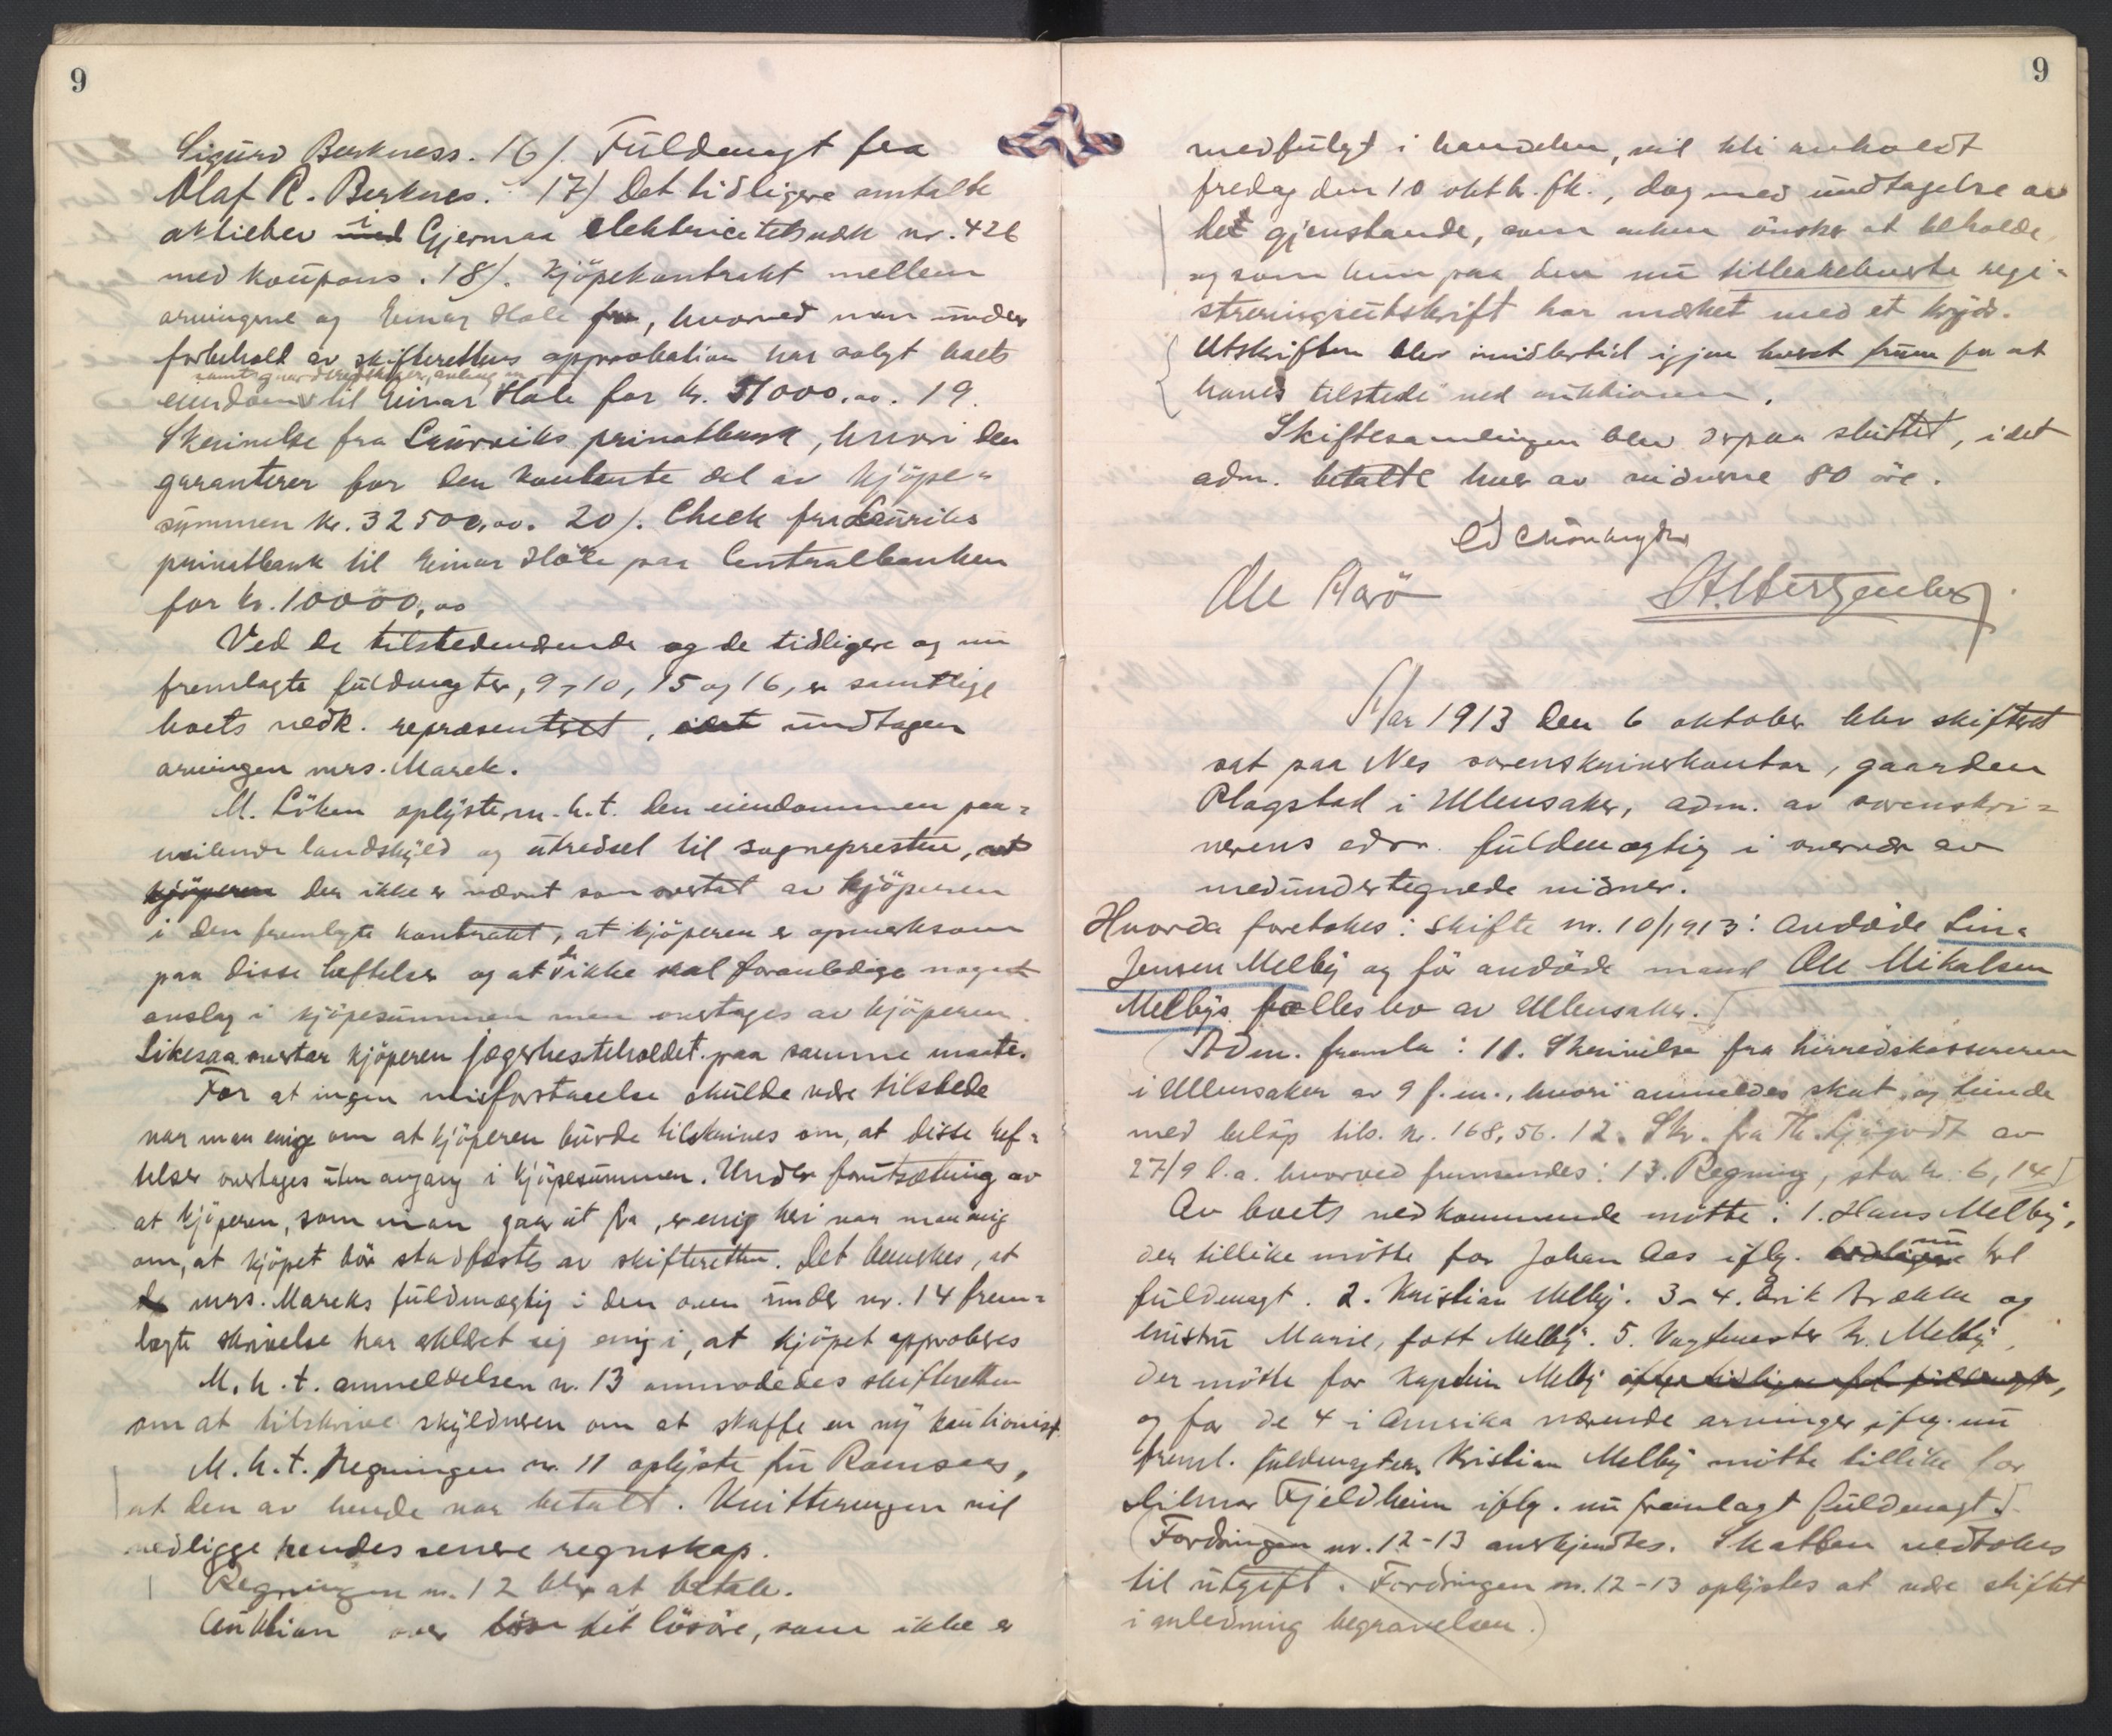 9
Sigurd Berkness. 16). Fuldmagt fra
Olaf R. Berknes. 17) Det tidligere omtalte
aktiebev i Gjermaa elektricitetsverk nr. 426
med koupons. 18). Kjöpekontrakt mellem
arvingerne og Einar Hole, hvorved man under
forbehold av skifterettens approbation har solgt boets
eiendom til Einar Hole for kr. 51000,00. 19.
Skrivelse fra Laurviks privatbank, hvori den
garanterer for den kontante del av kjöpe-
summen kr. 32500,00. 20). Check fra Laurviks
privatbank til Einar Hole paa Centralbanken
for kr. 10000,00
Ved de tilstedeværende og de tidligere og nu
fremlagte fuldmagter, 9, 10, 15 og 16, er samtlige
boets vedk. repræsentert, undtagen
arvingen mrs. Marek.
M. Löken oplyste m.h.t. den eiendommen paa-
hvilende landskyld og utredsel til sognepresten,
kjöperen der ikke er nævnt som overtat av kjöperen
i den fremlagte kontrakt, at kjöperen er opmerksom
paa disse heftelser og at de ikke skal foranledige noget
avslag i kjöpesummen men overtages av kjöperen.
Likesaa overtar kjöperen jægerhesteholdet paa samme maate.
For at ingen misforstaaelse skulde være tilstede
var man enige om at kjöperen burde tilskrives om, at disse hef-
telser overtages uten avgang i kjöpesummen. Under forutsætning av
at kjöperen, som man gaar ut fra, er enig heri var man enig
om, at kjöpet bör stadfæstes av skifteretten. Det bemerkes, at
mrs. Mareks fuldmægtig i den oven under nr. 14 frem-
lagte skrivelse har erklært sig enig i, at kjöpet approberes
M.h.t. anmeldelsen nr. 13 anmodedes skifteretten
om at tilskrive skyldneren om at skaffe en ny kautionist.
M.h.t. Regningen nr. 11 oplyste fru Ramsaas,
at den av hende var betalt. Kvitteringen vil
vedligge hendes senere regnskap.
Regningen nr. 12 blir at betale.
Auktion over det lösöre, som ikke er
9
medfulgt i handelen, vil bli avholdt
fredag den 10 oktbr. fk., dog med undtagelse av
de gjenstande, som enken önsker at beholde
og som hun paa den nu tilleakehørte regi-
streringsutskrift har merket med et kryds.
Utskriften blev imidlertid igjen
havés tilstede ved auktionen.
Skiftesamlingen blev derpaa sluttet, idet
adm. betalte hver av vidnerne 80 öre.
Ole Aarö
Aar 1913 den 6 oktober blev skifteret
sat paa Nes sorenskriverkontor, gaarden
Plogstad i Ullensaker, adm. av sorenskri-
verens edsv. fuldmægtig i overvær av
medundertegnede vidner.
Hvorda foretokes: skifte nr. 10/1913: avdöde Lina
Jensen Melby og för avdöde mand Ole Mikalsen
Melbys fælles bo av Ullensaker.
Adm. fremla: 11. Skrivelse fra herredskassereren
i Ullensaker av 9 f.m., hvori anmeldes skat og tiende
med belöp tils. kr. 168,56. 12. Skr. fra Th. Ljögodt av
27/9 l.a. hvorved fremsendes: 13. Regning, stor kr. 6,14
Av boets vedkommende mötte: 1. Hans Melby,
der tillike mötte for Johan Aas iflg. nu fr.l
fuldmagt. 2. Kristian Melby. 3-4. Erik Brække og
hustru Marie, födt Melby. 5. Vagtmester Kr. Melby,
der mötte for Kaptein Melby efter tidligere frl. fuldmagt,
og for de 4 i Amerika værende arvinger iflg. nu
freml. fuldmagter. Kristian Melby mötte tillike for
Hilmar Fjeldheim iflg. nu fremlagt fuldmagt.
Fordringen nr. 12-13 anerkjendtes. Skatten vedtokes
til utgift. Fordringen nr. 12-13 oplystes at være stiftet
i anledning begravelsen.